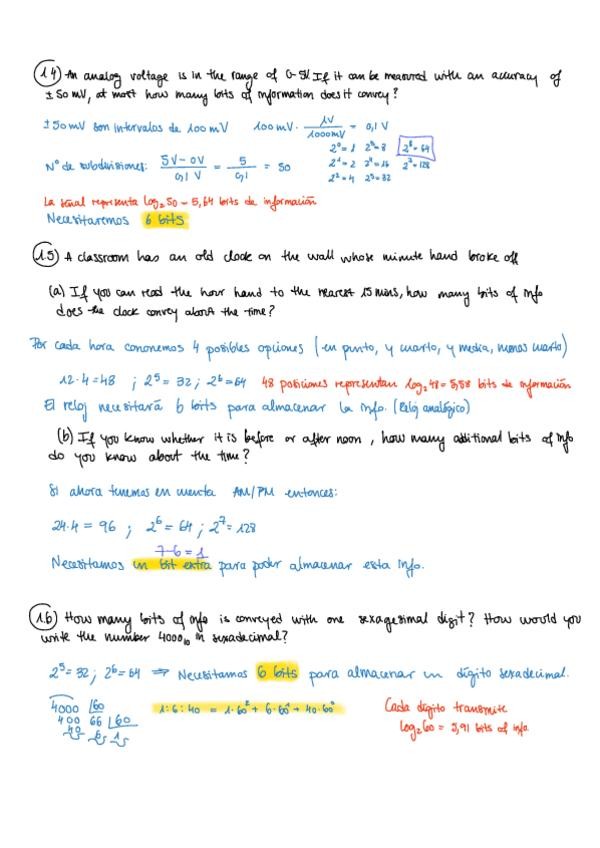 1.4) An analog voltage is in the range of 0-5V. If it can be measured with an accuracy of
± 50 mV, at most how many bits of information does it convey?
± 50mV son intervalos de 100 mV    100 mV · 1V/1000mV = 0,1 V
2⁰=1  2³=8  2⁶=64
2¹=2  2⁴=16  2⁷=128
2²=4  2⁵=32
Nº de subdivisiones: 5V-0V/0,1 V = 5/0,1 = 50
La señal representa log₂50 = 5,64 bits de información
Necesitaremos 6 bits
1.5) A classroom has an old clock on the wall whose minute hand broke off
(a) If you can read the hour hand to the nearest 15 mins, how many bits of info
does the clock convey about the time?
Por cada hora cononemos 4 posibles opciones (en punto, y cuarto, y media, menos cuarto)
12·4=48 ; 2⁵=32 ; 2⁶=64  48 posiciones representan log₂48=5,58 bits de información
El reloj necesitará 6 bits para almacenar la info. (Reloj analógico)
(b) If you know whether it is before or after noon, how many additional bits of info
do you know about the time?
Si ahora tenemos en cuenta AM/PM entonces:
24·4 = 96 ; 2⁶=64 ; 2⁷=128
7-6=1
Necesitamos un bit extra para poder almacenar esta info.
1.6) How many bits of info is conveyed with one sexagesimal digit? How would you
write the number 4000₁₀ in sexadecimal?
2⁵=32 ; 2⁶=64 ⇒ Necesitamos 6 bits para almacenar un dígito sexadecimal.
4000 |60    1:6:40 = 1·60² + 6·60¹ + 40·60⁰    Cada dígito transmite
400 66 |60    log₂60 = 5,91 bits of info
40 6 1